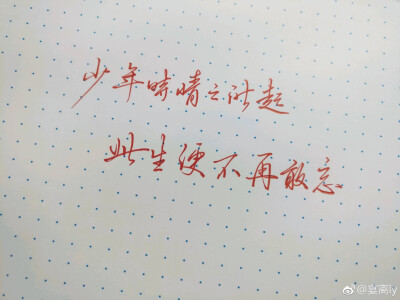 少年时情之所起
此生便不再敢忘
@宴离ly